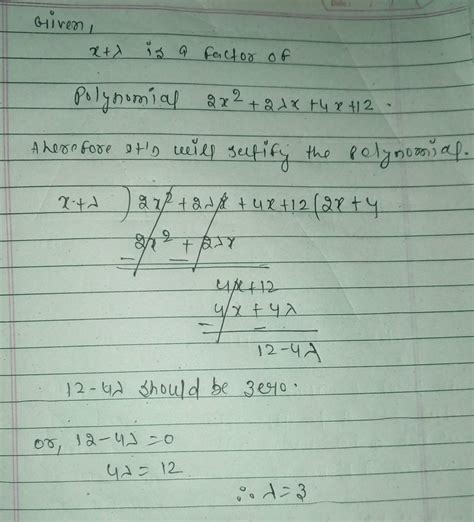 Given,
x+λ is a factor of
Polynomial 2x² + 2λx + 4x + 12.
Therefore it's will satify the polynomial.
x+λ ) 2x² + 2λx + 4x + 12 ( 2x + 4
2x² + 2λx
− −
4x + 12
4x + 4λ
− −
12 − 4λ
12 − 4λ should be zero.
or, 12 − 4λ = 0
4λ = 12
∴ λ = 3